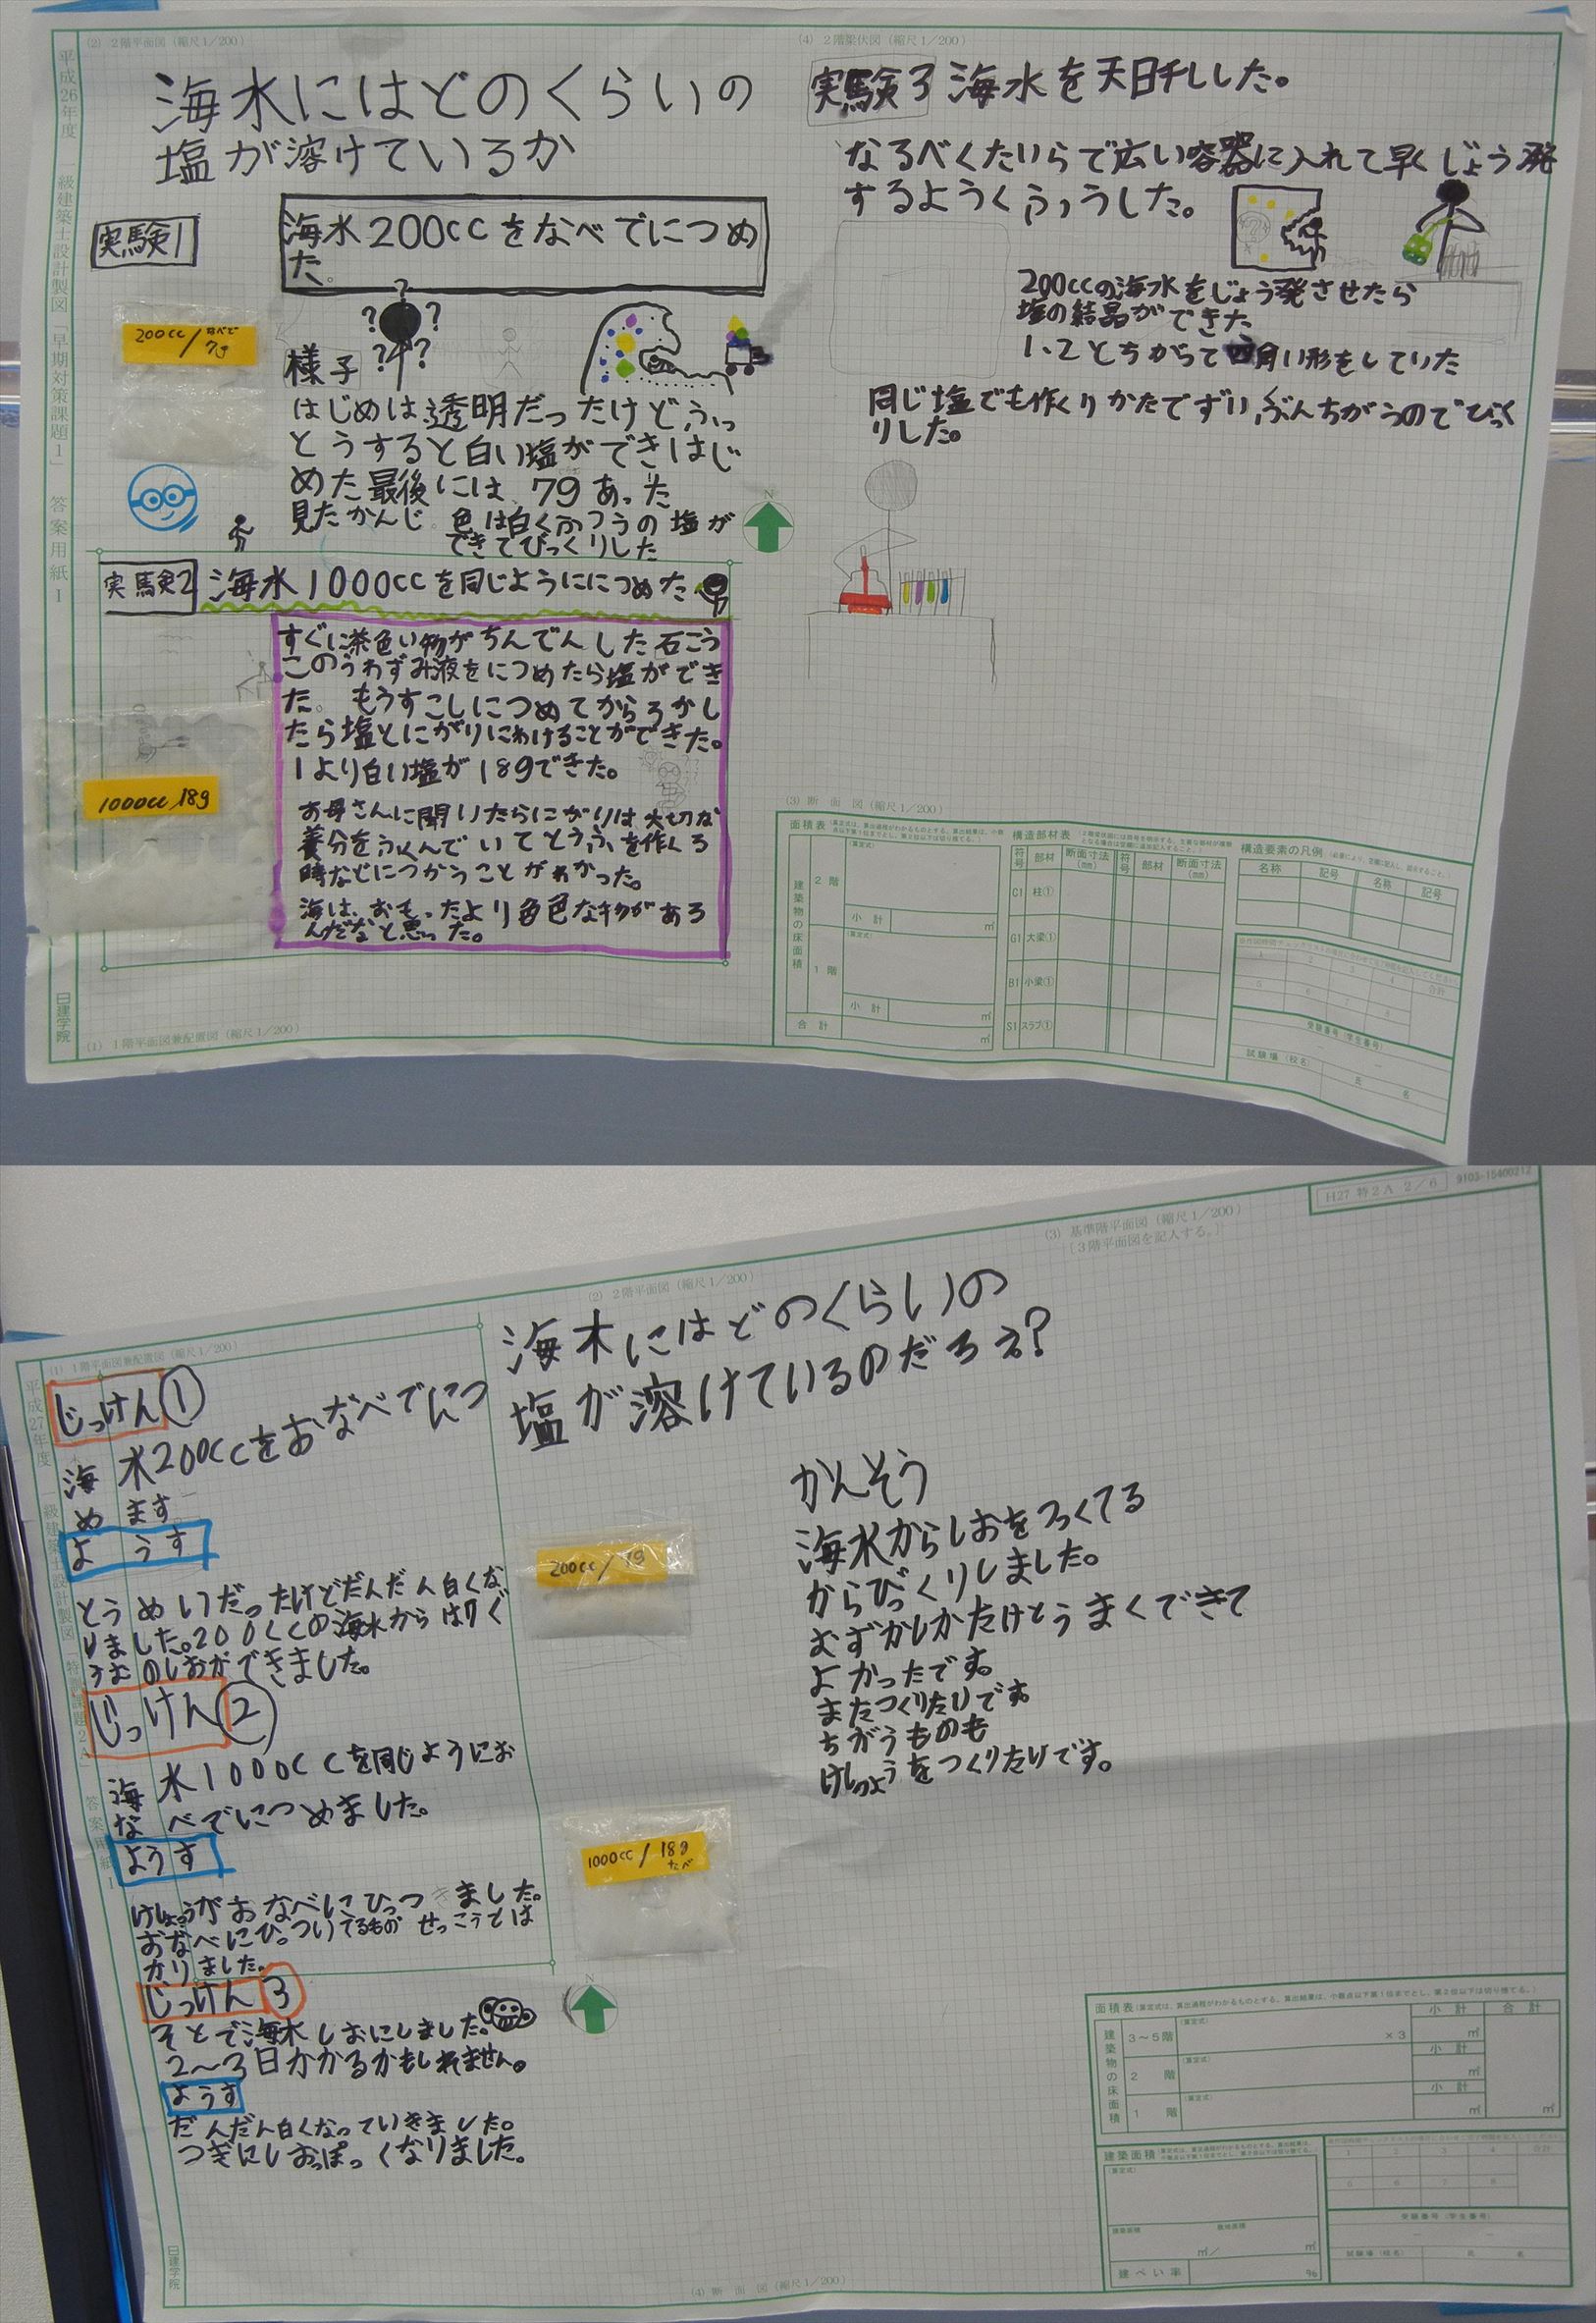 (2) 2階平面図 (縮尺1/200)
平成26年度 一級建築士設計製図「早期対策課題1」 答案用紙 I
日建学院
海水にはどのくらいの
塩が溶けているか
実験1
海水200ccをなべでにつめ
た。
200cc/なべで
7g
? ? ? ? ?
様子
はじめは透明だったけどふっ
とうすると白い塩ができはじ
めた最後には、7gあった
見たかんじ 色は白くふつうの塩が
できてびっくりした
N
実験2 海水1000ccを同じようににつめた
すぐに茶色い物がちんでんした石こう
このうわずみ液をにつめたら塩ができ
た。もうすこしにつめてからろかし
たら塩とにがりにわけることができた。
1より白い塩が18gできた。
お母さんに聞いたらにがりは大切な
養分をふくんでいてとうふを作くる
時などにつかうことがわかった。
海は、おもったより色色な物がある
んだなと思った。
1000cc 18g
(1) 1階平面図兼配置図 (縮尺1/200)
(4) 2階梁伏図 (縮尺1/200)
実験3 海水を天日干しした。
なるべくたいらで広い容器に入れて早くじょう発
するようくふうした。
200ccの海水をじょう発させたら
塩の結晶ができた
1、2とちがって四角い形をしていた
同じ塩でも作くりかたでずいぶんちがうのでびっく
りした。
(3) 断面図 (縮尺1/200)
面積表
建築物の床面積
2階
(算定式)
小計 ㎡
1階
(算定式)
小計 ㎡
合計 ㎡
構造部材表
符号 部材 断面寸法(mm) 符号 部材 断面寸法(mm)
C1 柱①
G1 大梁①
B1 小梁①
S1 スラブ①
構造要素の凡例
名称 記号 名称 記号
受験番号 (学生番号)
試験場 (校名)
氏名
H27 特2A 2/6 9103-15400212
(3) 基準階平面図 (縮尺1/200)
[3階平面図を記入する。]
(2) 2階平面図 (縮尺1/200)
(1) 1階平面図兼配置図 (縮尺1/200)
海水にはどのくらいの
塩が溶けているのだろう?
じっけん①
海水200ccをおなべでにつ
めます
ようす
とうめいだったけどだんだん白くな
りました。200ccの海水からは7ぐ
らむのしおができました。
じっけん②
海水1000ccを同じようにお
なべでにつめました。
ようす
けしょうがおなべにひっつきました。
おなべにひっついてるものがせっこうとわ
かりました。
じっけん③
そとで海水しおにしました。
2〜3日かかるかもしれません。
ようす
だんだん白くなっていきました。
つぎにしおっぽっくなりました。
200cc/7g
1000cc/18g
なべ
N
かんそう
海水からしおをつくてる
からびっくりしました。
むずかしかたけとうまくできて
よかったです。
またつくりたいです。
ちがうものも
けしょうをつくりたいです。
平成27年度 一級建築士設計製図
日建学院
(4) 断面図 (縮尺1/200)
面積表
建築物の床面積
3〜5階 (算定式) ×3 小計 ㎡ 合計
2階 (算定式) 小計 ㎡
1階 (算定式) 小計 ㎡ ㎡
建築面積
(算定式)
建築面積 敷地面積
㎡/ ㎡
建ぺい率 %
受験番号 (学生番号)
試験場 (校名) 氏名